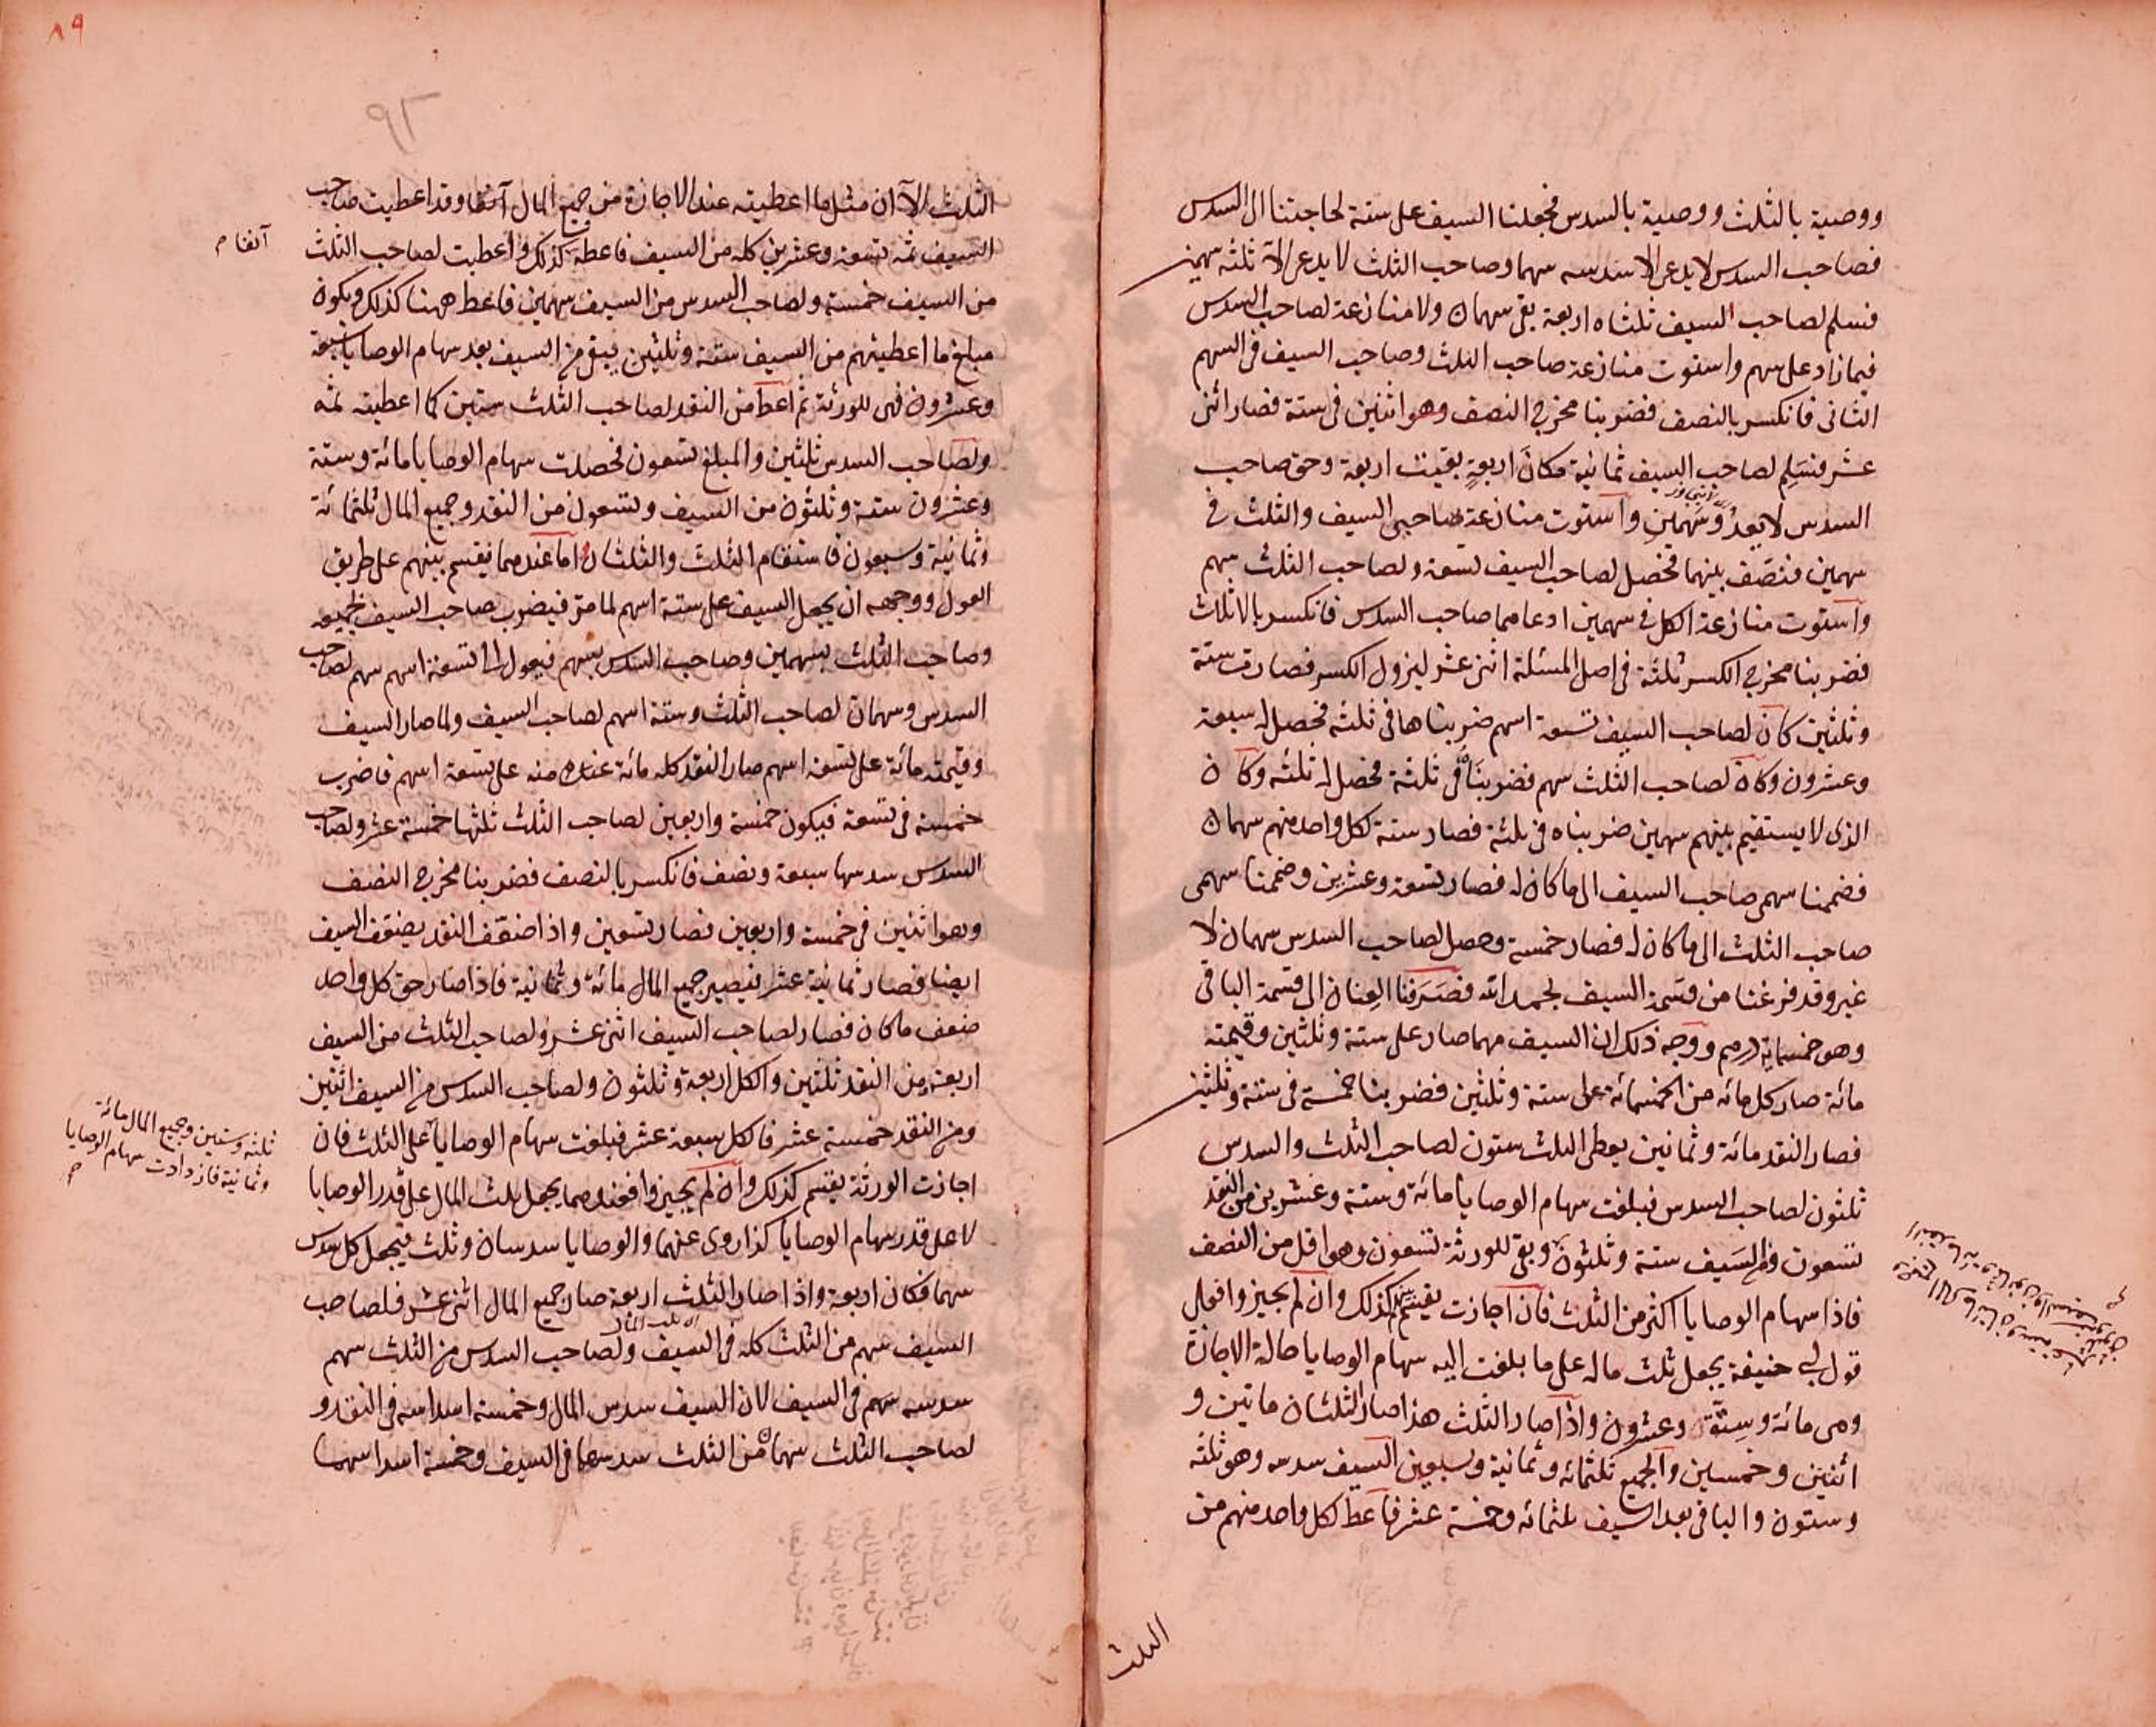 ووصية بالثلث ووصية بالسدس فجعلنا السيف على ستة لحاجتنا الى السدس
فصاحب السدس لا يدعى الا سدسه سهما وصاحب الثلث لا يدعى الا ثلثه سهمين
فسلم لصاحب السيف ثلثاه اربعة بقى سهمان ولا منازعة لصاحب السدس
فيما زاد على سهم واستوت منازعة صاحب الثلث وصاحب السيف فى السهم
الثانى فانكسر بالنصف فضربنا مخرج النصف وهو اثنين فى ستة فصار اثنى
عشر فنسلم لصاحب السيف ثمانية مكان اربعة بقيت اربعة وحق صاحب
السدس لا يعدو سهمين واستوت منازعة صاحبى السيف والثلث فى
سهمين فنصف بينهما فحصل لصاحب السيف تسعة ولصاحب الثلث سهم
واستوت منازعة الكل فى سهمين ادعاهما صاحب السدس فانكسر بالاثلاث
فضربنا مخرج الكسر ثلثة فى اصل المسئلة اثنى عشر ليزول الكسر فصارت ستة
وثلثين كان لصاحب السيف تسعة اسهم ضربناها فى ثلثه فحصل له سبعة
وعشرون وكان لصاحب الثلث سهم فضربناه فى ثلثة فحصل له ثلثه وكان
الذى لا يستقيم بينهم سهمين ضربناه فى ثلثة فصار ستة لكل واحد منهم سهمان
فضممنا سهمى صاحب السيف الى ما كان له فصار تسعة وعشرين وضممنا سهمى
صاحب الثلث الى ما كان له فصار خمسة وحصل لصاحب السدس سهمان لا
غير وقد فرغنا من قسمة السيف بحمد الله فصرفنا العنان الى قسمة الباقى
وهو خمسماية درهم ووجه ذلك ان السيف مهما صار على ستة وثلثين وقيمته
مائة صار كل مائه من الخمسمائة على ستة وثلثين فضربنا خمسة فى ستة وثلثين
فصار النقد مائة وثمانين يعطى الثلث ستون لصاحب الثلث والسدس
ثلثون لصاحب السدس فبلغت سهام الوصايا مائة وستة وعشرين من النقد
تسعون ومن السيف ستة وثلثون وبقى للورثة تسعون وهو اقل من النصف
فاذا سهام الوصايا اكثر من الثلث فان اجازت يقسم كذلك وان لم يجيزوا فعلى
قول ابى حنيفة يجعل ثلث ماله على ما بلغت اليه سهام الوصايا حالة الاجازة
وهى مائة وستة وعشرون واذا صار الثلث هذا صار الثلثان مائتين و
اثنين وخمسين والجميع ثلثمائه وثمانية وسبعين السيف سدسه وهو ثلثه
وستون والباقى بعد السيف ثلثمائه وخمسة عشر فاعط لكل واحد منهم من
الثلث
٨٩
٩٢
الثلث الا ان مثل ما اعطيته عند الاجازة من جميع المال آنفا وقد اعطيت صاحب
السيف ثمه تسعة وعشرين كله من السيف فاعطه كذلك واعطيت لصاحب الثلث
آنفا م
من السيف خمسة ولصاحب السدس من السيف سهمين فاعط ههنا كذلك ويكون
مبلغ ما اعطيتهم من السيف ستة وثلثين يبقى من السيف بعد سهام الوصايا سبعة
وعشرون فهى للورثة ثم اعط من النقد لصاحب الثلث ستين كما اعطيته ثمه
ولصاحب السدس ثلثين والمبلغ تسعون فحصلت سهام الوصايا مائة وستة
وعشرون ستة وثلثون من السيف وتسعون من النقد وجميع المال ثلثمائة
وثمانية وسبعون فاستقام الثلث والثلثان واما عندهما فيقسم بينهم على طريق
العول ووجهه ان يجعل السيف على ستة اسهم لما مر فيضرب صاحب السيف بجميعه
وصاحب الثلث بسهمين وصاحب السدس بسهم فيعول الى تسعة اسهم سهم لصاحب
السدس وسهمان لصاحب الثلث وستة اسهم لصاحب السيف ولما صار السيف
وقيمته مائة على تسعة اسهم صار النقد كله مائة منه على تسعة اسهم فاضرب
خمسة فى تسعة فيكون خمسة واربعين لصاحب الثلث ثلثها خمسة عشر ولصاحب
السدس سدسها سبعة ونصف فانكسر بالنصف فضربنا مخرج النصف
وهو اثنين فى خمسة واربعين فصار تسعين واذا ضعف النقد يضعف السيف
ايضا فصار ثمانية عشر فيصير جميع المال مائة وثمانية فاذا صار حق كل واحد
ضعف ما كان فصار لصاحب السيف اثنى عشر ولصاحب الثلث من السيف
اربعة ومن النقد ثلثين والكل اربعة وثلثون ولصاحب السدس من السيف اثنين
ومن النقد خمسة عشر فالكل سبعة عشر فبلغت سهام الوصايا على الثلث فان
ثلثه وستين وجميع المال مائة
وثمانية فازدادت سهام الوصايا
اجازت الورثة يقسم كذلك وان لم يجيزوا فعندهما يجعل ثلث المال على قدر الوصايا
لا على قدر سهام الوصايا كذا روى عنهما والوصايا سدسان وثلث فيجعل كل سدس
سهما فكان اربعة واذا صار الثلث اربعة صار جميع المال اثنى عشر فلصاحب
السيف سهم من الثلث كله فى السيف ولصاحب السدس من الثلث سهم
سدسه سهم فى السيف لان السيف سدس المال وخمسة اسداسه فى النقد و
لصاحب الثلث سهمان من الثلث سدسهما فى السيف وخمسة اسداسهما